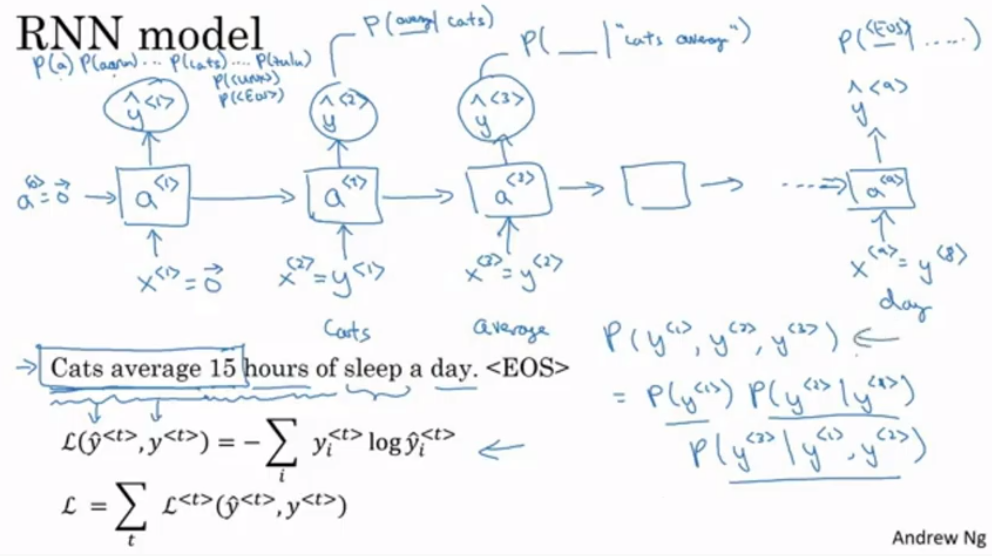 RNN model
P(a) P(aaron) ... P(cats) ... P(zulu)
P(<UNK>)
P(<EOS>)
P(average | cats)
P(__ | "cats average")
P(<EOS> | .....)
ŷ<1> ŷ<2> ŷ<3> ŷ<9>
a<0>=0⃗ → a<1> → a<2> → a<3> → → ....⇒ a<9>
x<1>=0⃗ x<2>=y<1> x<3>=y<2> x<9>=y<8>
Cats average day
→ Cats average 15 hours of sleep a day. <EOS>
P(y<1>, y<2>, y<3>) ←
= P(y<1>) P(y<2> | y<1>)
P(y<3> | y<1>, y<2>)
ℒ(ŷ<t>, y<t>) = −∑i yi<t> log ŷi<t> ←
ℒ = ∑t ℒ<t>(ŷ<t>, y<t>)
Andrew Ng